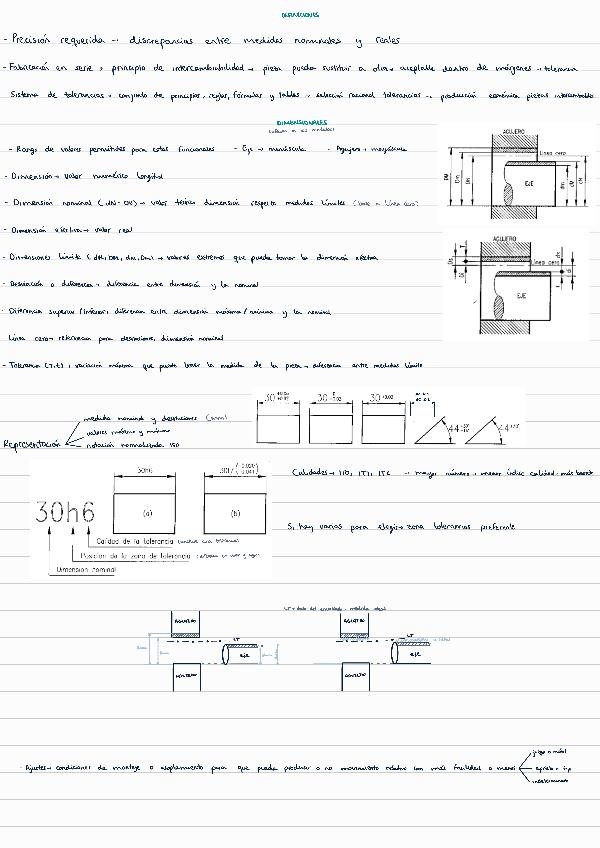 DEFINICIONES
- Precisión requerida → discrepancias entre medidas nominales y reales
- Fabricación en serie, principio de intercambiabilidad → pieza pueda sustituir a otra → aceptable dentro de márgenes → tolerancia
Sistema de tolerancias → conjunto de principios, reglas, fórmulas y tablas → selección racional tolerancias → producción económica piezas intercambiables
DIMENSIONALES
- Rango de valores permitidos para estas funcionales - Eje → minúscula - Agujero → mayúscula
- Dimensión → valor numérico longitud
- Dimensión nominal (dN-DN) → valor teórico dimensión respecto medidas límites
- Dimensión efectiva → valor real
- Dimensiones límite → valores extremos que puede tomar la dimensión efectiva
- Desviación o diferencia → diferencia entre dimensión y la nominal
- Diferencia superior/inferior: diferencia entre dimensión máxima/mínima y la nominal
Línea cero → referencia para desviaciones, dimensión nominal
- Tolerancia (T,t), variación máxima que puede tener la medida de la pieza → diferencia entre medidas límite
AGUJERO
Línea cero
EJE
DN
Dm
dN
AGUJERO
Línea cero
EJE
Representación
medida nominal y desviaciones (mm)
valores máximo y mínimo
notación normalizada ISO
30
30
30
44
30h6
30f7
(a)
(b)
30h6
Calidad de la tolerancia
Posición de la zona de tolerancia
Dimensión nominal
Calidades → mayor número, menor índice calidad, más basto
Si hay varias para elegir → zona tolerancias preferente
AGUJERO
LT
EJE
AGUJERO
AGUJERO
LT
EJE
AGUJERO
- Ajustes → condiciones de montaje o acoplamiento para que pueda producir o no movimiento relativo con más facilidad o menos
juego o móvil
aprieto o fijo
indeterminado